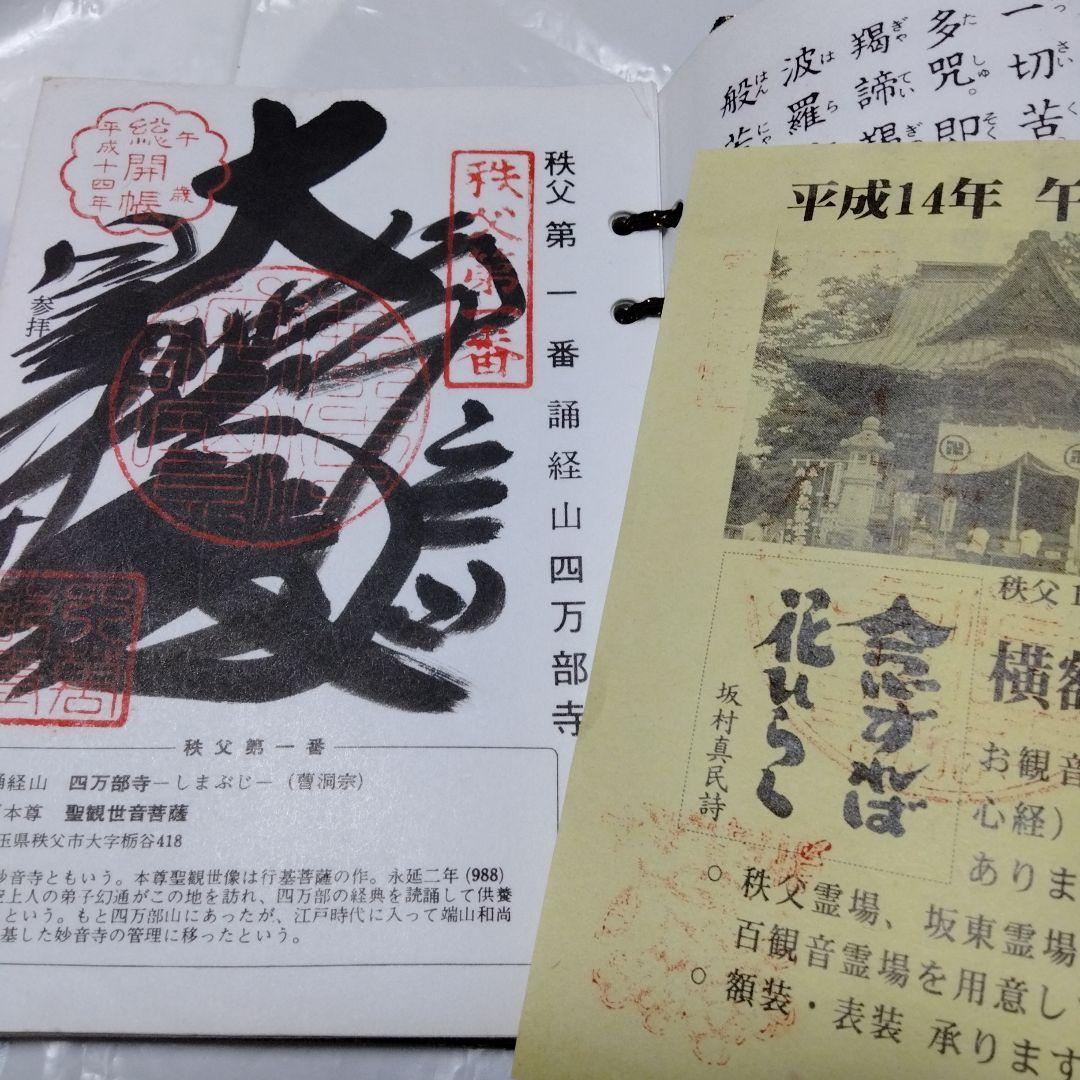 午歳
総開帳
平成十四年
参拝
大
秩父第一番
秩父第一番 誦経山四万部寺
秩父第一番
誦経山 四万部寺―しまぶじ―(曹洞宗)
本尊 聖観世音菩薩
玉県秩父市大字栃谷418
妙音寺ともいう。本尊聖観世像は行基菩薩の作。永延二年(988)
上人の弟子幻通がこの地を訪れ、四万部の経典を読誦して供養
という。もと四万部山にあったが、江戸時代に入って端山和尚
基した妙音寺の管理に移ったという。
一切苦
多呪。即
羯諦羯
波羅
般若
平成14年 午
秩父
念ずれば
花ひらく
坂村真民詩
横額
お観音
心経)
ありま
○ 秩父霊場、坂東霊場
百観音霊場を用意し
○ 額装・表装 承ります